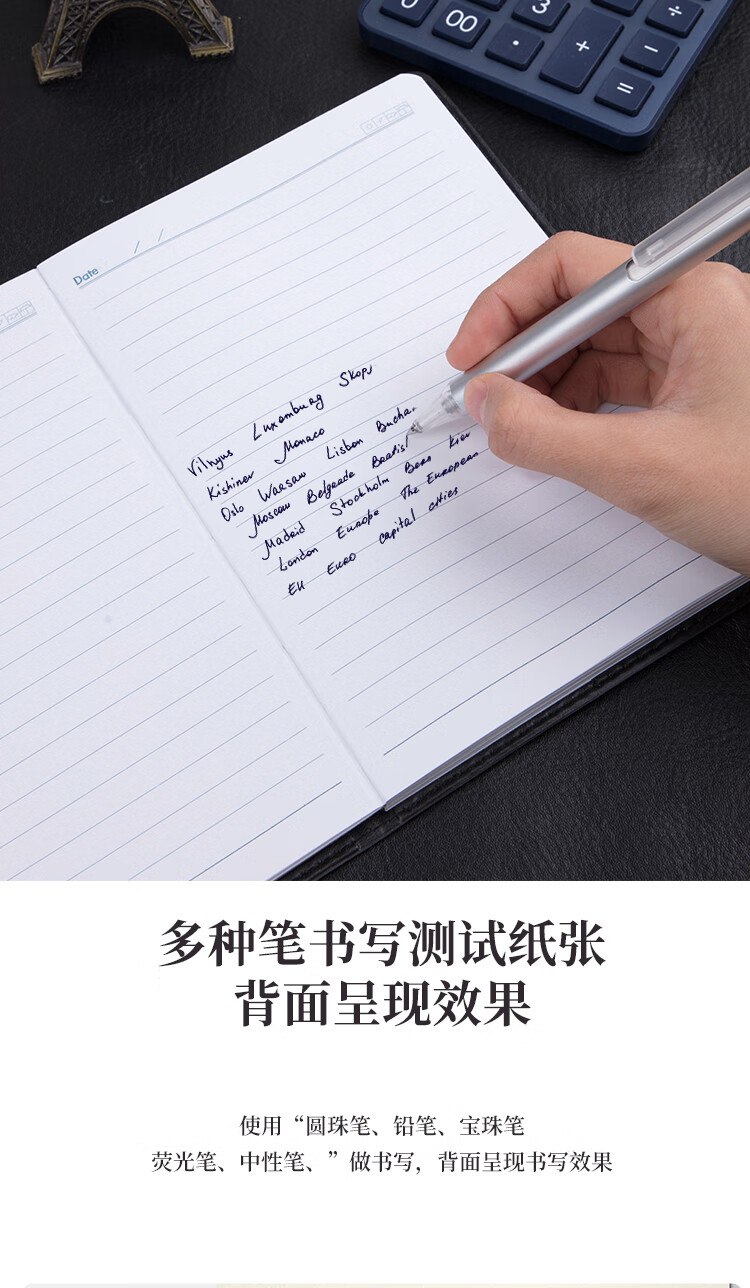 00
3
÷
·
+
−
=
Date / /
Vilnyus Luxemburg Skopj
Kishinev Monaco
Oslo Warsaw Lisbon Bucha
Moscow Belgrade Bratisl
Madrid Stockholm Bern Kiev
London Europe The European
EU EURO capital cities
多种笔书写测试纸张
背面呈现效果
使用“圆珠笔、铅笔、宝珠笔
荧光笔、中性笔、”做书写，背面呈现书写效果